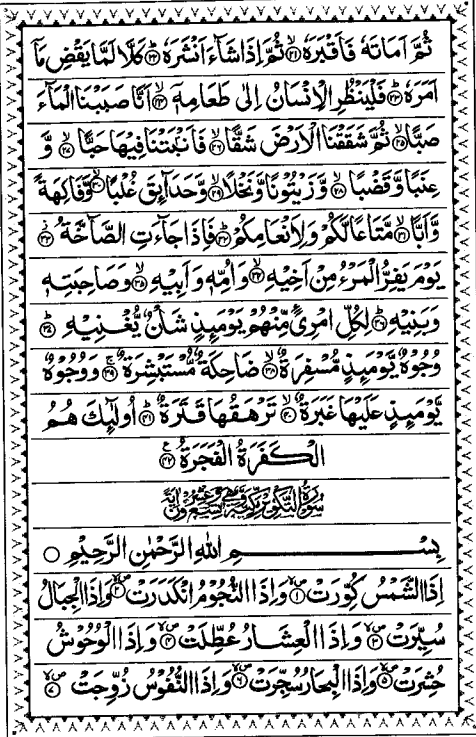 ثُمَّ اَمَاتَهٗ فَاَقْبَرَهٗ ۙ﴿۲۱﴾ ثُمَّ اِذَا شَآءَ اَنْشَرَهٗ ؕ﴿۲۲﴾ كَلَّا لَمَّا يَقْضِ مَاۤ
اَمَرَهٗ ؕ﴿۲۳﴾ فَلْيَنْظُرِ الْاِنْسَانُ اِلٰى طَعَامِهٖۤ ۙ﴿۲۴﴾ اَنَّا صَبَبْنَا الْمَآءَ
صَبًّا ۙ﴿۲۵﴾ ثُمَّ شَقَقْنَا الْاَرْضَ شَقًّا ۙ﴿۲۶﴾ فَاَنْۢبَتْنَا فِيْهَا حَبًّا ۙ﴿۲۷﴾ وَّ
عِنَبًا وَّقَضْبًا ۙ﴿۲۸﴾ وَّزَيْتُوْنًا وَّنَخْلًا ۙ﴿۲۹﴾ وَّحَدَآئِقَ غُلْبًا ۙ﴿۳۰﴾ وَّفَاكِهَةً
وَّاَبًّا ۙ﴿۳۱﴾ مَّتَاعًا لَّكُمْ وَلِاَنْعَامِكُمْ ؕ﴿۳۲﴾ فَاِذَا جَآءَتِ الصَّآخَّةُ ۫﴿۳۳﴾
يَوْمَ يَفِرُّ الْمَرْءُ مِنْ اَخِيْهِ ۙ﴿۳۴﴾ وَاُمِّهٖ وَاَبِيْهِ ۙ﴿۳۵﴾ وَصَاحِبَتِهٖ
وَبَنِيْهِ ؕ﴿۳۶﴾ لِكُلِّ امْرِئٍ مِّنْهُمْ يَوْمَئِذٍ شَاْنٌ يُّغْنِيْهِ ؕ﴿۳۷﴾
وُجُوْهٌ يَّوْمَئِذٍ مُّسْفِرَةٌ ۙ﴿۳۸﴾ ضَاحِكَةٌ مُّسْتَبْشِرَةٌ ۚ﴿۳۹﴾ وَوُجُوْهٌ
يَّوْمَئِذٍ عَلَيْهَا غَبَرَةٌ ۙ﴿۴۰﴾ تَرْهَقُهَا قَتَرَةٌ ؕ﴿۴۱﴾ اُولٰٓئِكَ هُمُ
الْكَفَرَةُ الْفَجَرَةُ ﴿۴۲﴾
سُوْرَةُ التَّكْوِيْرِ مَكِّيَّةٌ وَّهِيَ تِسْعٌ وَّعِشْرُوْنَ اٰيَةً
بِسْمِ اللّٰهِ الرَّحْمٰنِ الرَّحِيْمِ ○
اِذَا الشَّمْسُ كُوِّرَتْ ﴿۱﴾ وَاِذَا النُّجُوْمُ انْكَدَرَتْ ﴿۲﴾ وَاِذَا الْجِبَالُ
سُيِّرَتْ ﴿۳﴾ وَاِذَا الْعِشَارُ عُطِّلَتْ ﴿۴﴾ وَاِذَا الْوُحُوْشُ
حُشِرَتْ ﴿۵﴾ وَاِذَا الْبِحَارُ سُجِّرَتْ ﴿۶﴾ وَاِذَا النُّفُوْسُ زُوِّجَتْ ﴿۷﴾